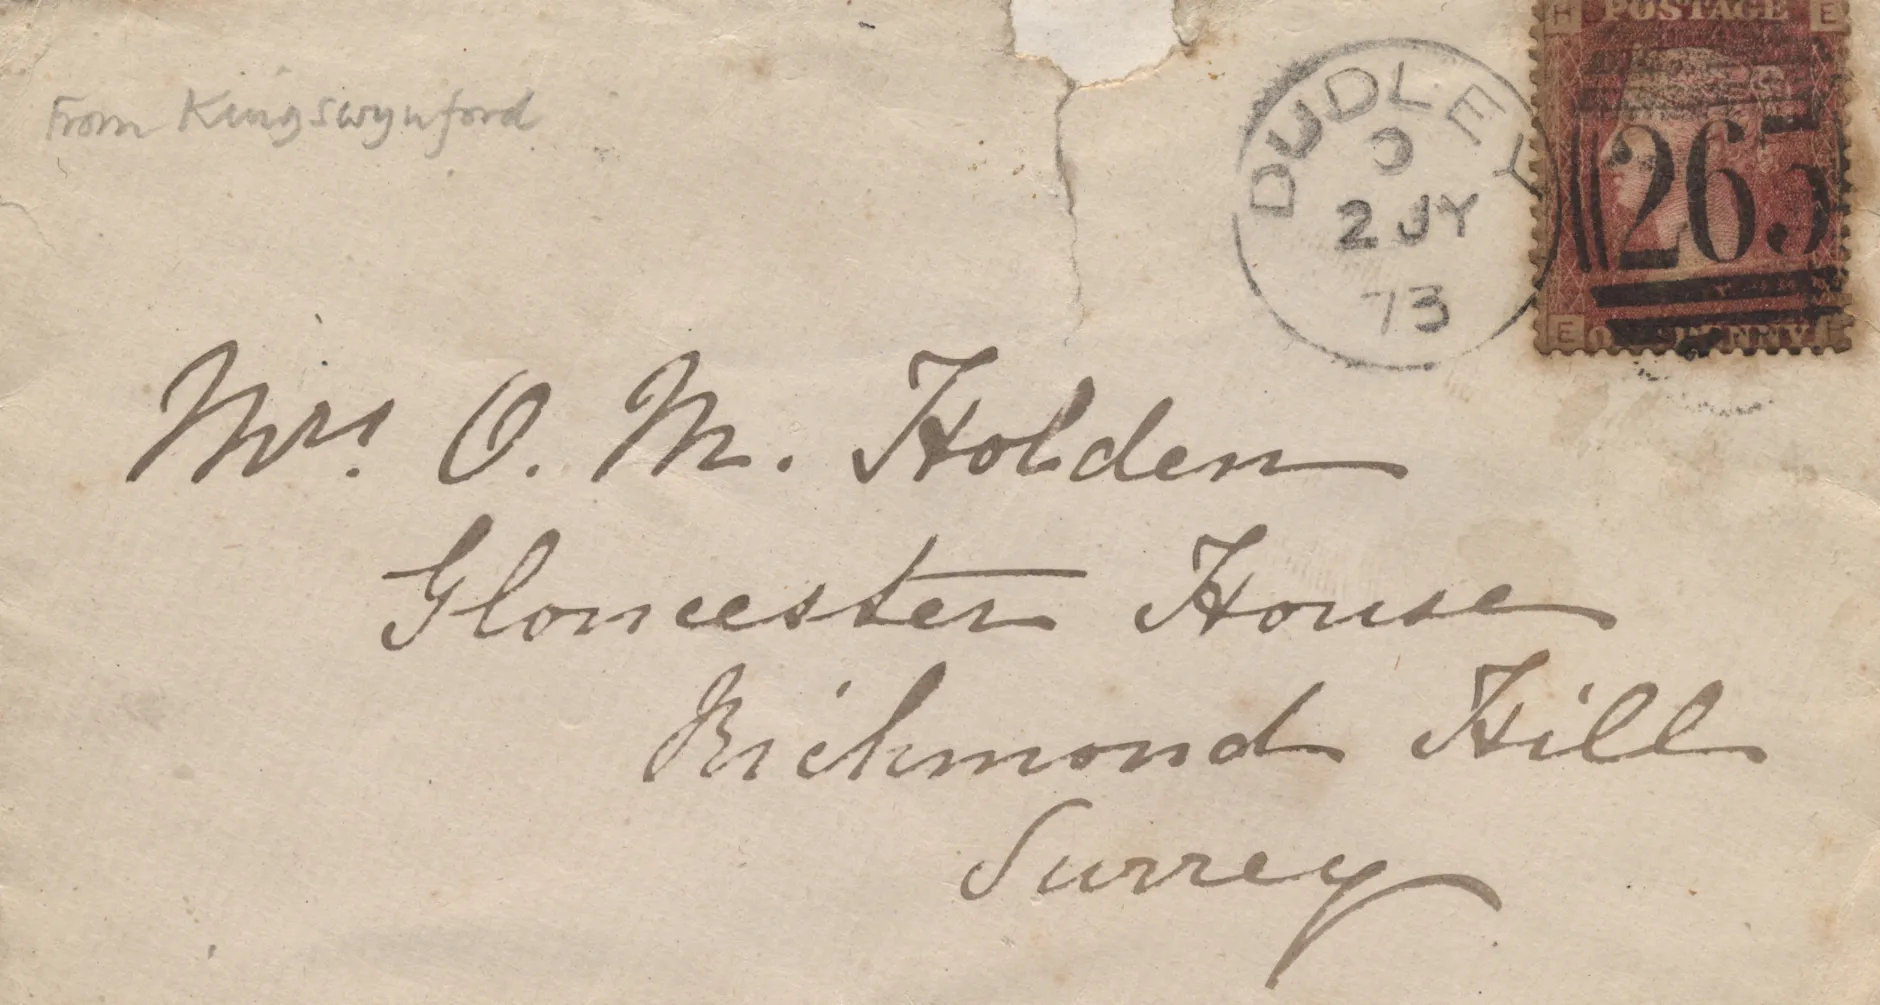 From Kingswynford
H POSTAGE E
DUDLEY
2 JY
73
265
E ONE PENNY
Mrs. O. M. Holden
Gloucester House
Richmond Hill
Surrey